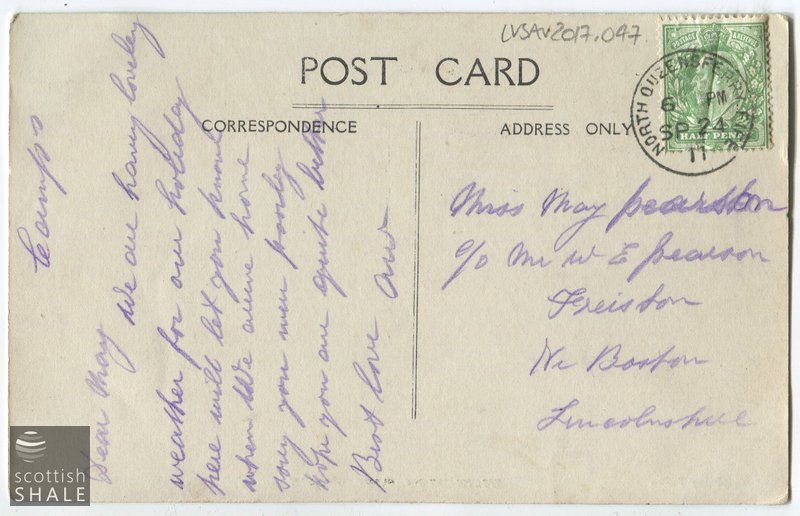 LVSAV2017.047
POST CARD
CORRESPONDENCE
ADDRESS ONLY
NORTH QUEENSFERRY
6 PM
SP 24
11
HALF PENNY
Camps
Dear May
We are having loveley
weather for our holiday
here will let you know
when we arrive home
sorry you were poorly
hope you are quite better
Best love and
Miss May Pearson
c/o Mr W E Pearson
Freiston
Nr Boston
Lincolnshire
scottish
SHALE